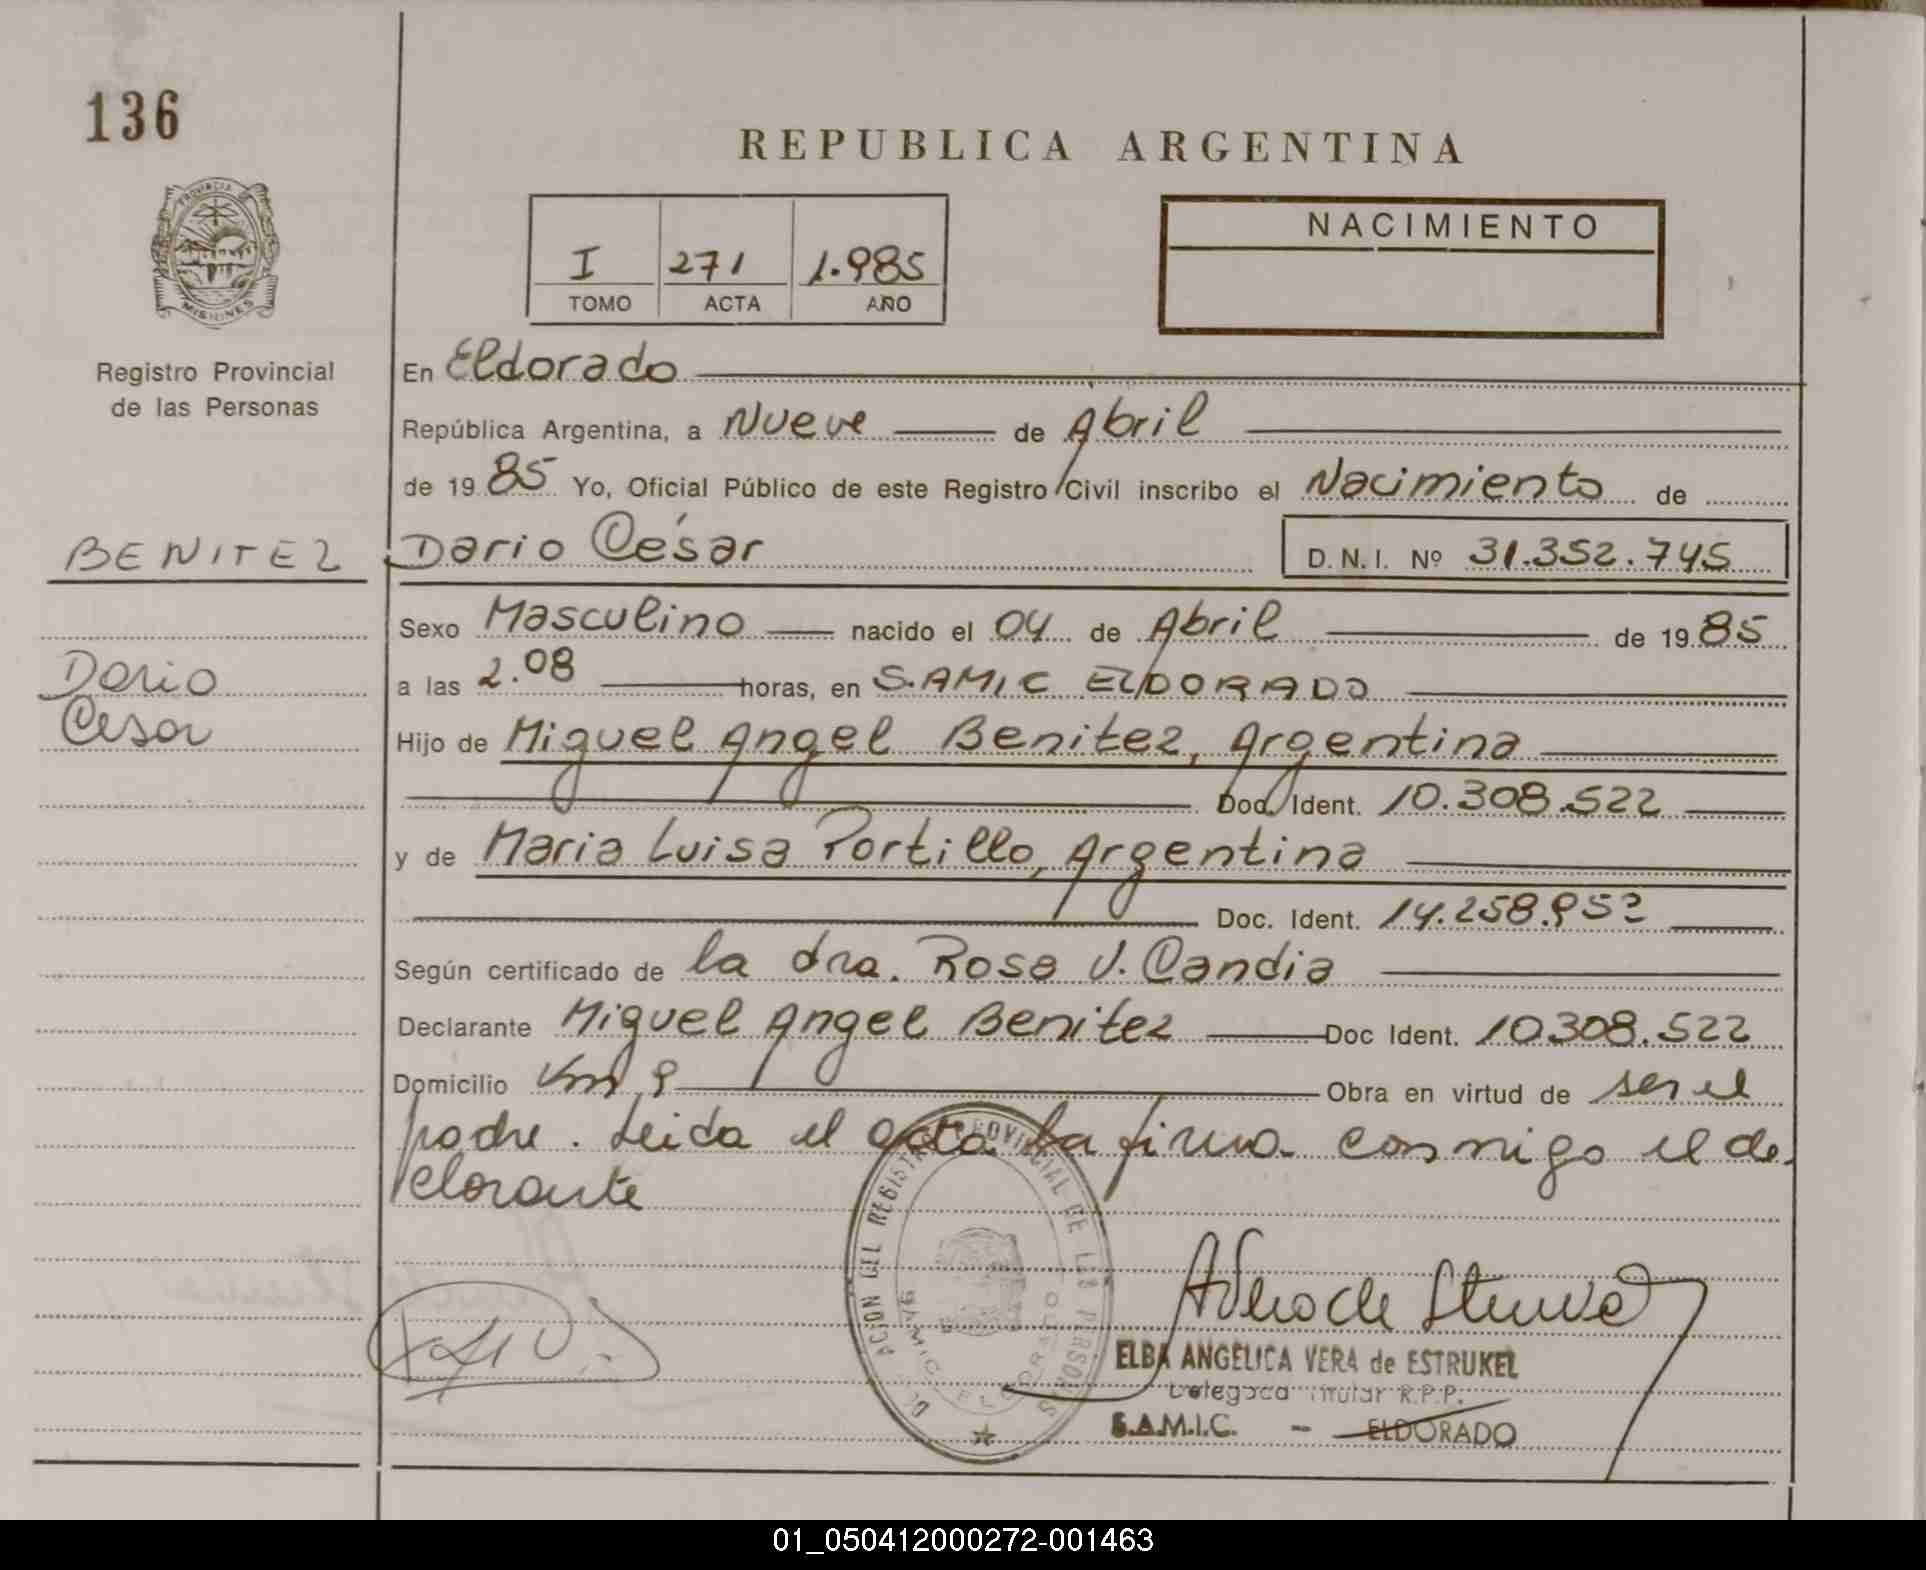 136
REPUBLICA ARGENTINA
PROVINCIA DE
MISIONES
I 271 1.985
TOMO ACTA AÑO
NACIMIENTO
Registro Provincial
de las Personas
En Eldorado
República Argentina, a Nueve de Abril
de 1985 Yo, Oficial Público de este Registro Civil inscribo el Nacimiento de
BENITEZ
Dario César D.N.I. Nº 31.352.745
Sexo Masculino nacido el 04 de Abril de 1985
Dario
Cesar
a las 2.08 horas, en S.AMIC ELDORADO
Hijo de Miguel Angel Benitez, Argentina
Doc. Ident. 10.308.522
y de Maria Luisa Portillo, Argentina
Doc. Ident. 14.258.952
Según certificado de la dra. Rosa V. Candia
Declarante Miguel Angel Benitez Doc Ident. 10.308.522
Domicilio Km 9 Obra en virtud de ser el
padre. Leida el acta la firma conmigo el de
clarante
ACION DEL REGISTRO PROVINCIAL DE LAS PERSONAS
SAMIC ELDORADO
ELBA ANGELICA VERA de ESTRUKEL
Delegada Titular R.P.P.
S.A.M.I.C. - ELDORADO
01_050412000272-001463